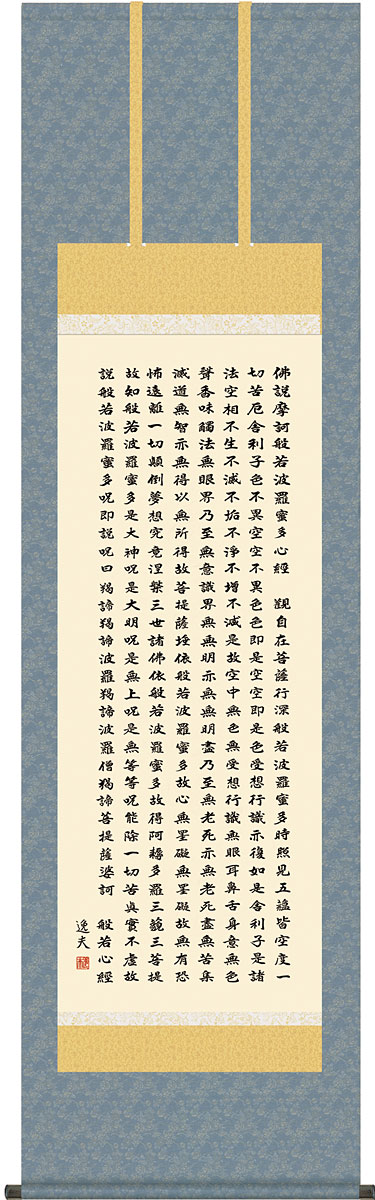 佛説摩訶般若波羅蜜多心經　觀自在菩薩行深般若波羅蜜多時照見五蘊皆空度一
切苦厄舍利子色不異空空不異色色即是空空即是色受想行識亦復如是舍利子是諸
法空相不生不滅不垢不淨不增不減是故空中無色無受想行識無眼耳鼻舌身意無色
聲香味觸法無眼界乃至無意識界無無明亦無無明盡乃至無老死亦無老死盡無苦集
滅道無智亦無得以無所得故菩提薩埵依般若波羅蜜多故心無罣礙無罣礙故無有恐
怖遠離一切顛倒夢想究竟涅槃三世諸佛依般若波羅蜜多故得阿耨多羅三藐三菩提
故知般若波羅蜜多是大神呪是大明呪是無上呪是無等等呪能除一切苦真實不虛故
説般若波羅蜜多呪即説呪曰羯諦羯諦波羅羯諦波羅僧羯諦菩提薩婆訶　般若心經
逸夫